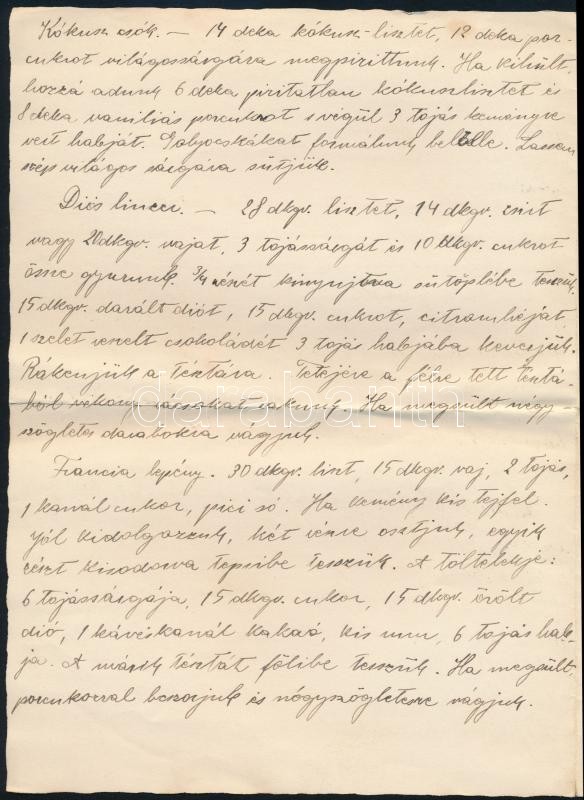 Kókusz csók. — 14 deka kókusz-lisztet, 12 deka por-
cukrot világossárgára megpirittunk. Ha kihült,
hozzá adunk 6 deka piritatlan kókuszlisztet és
8 deka vaniliás porcukrot s végül 3 tojás keményre
vert habját. Golyocskákat formálunk belölle. Lassan
szép világos sárgára sütjük.
Diós lincer. — 28 dkgr. lisztet, 14 dkgr. zsirt
vagy 20 dkgr. vajat, 3 tojássárgát és 10 dkgr. cukrot
össze gyurunk. 3/4 részét kinyujtva sütöplébe teszük.
15 dkgr. darált diót, 15 dkgr. cukrot, citromhéját,
1 szelet reszelt csokoládét 3 tojás habjába keverjük.
Rákenjük a tésztára. Tetejére a félre tett tésztá-
ból vékony rácsokat rakunk. Ha megsült négy-
szögletes darabokra vágjuk.
Francia lepény. 30 dkgr. liszt, 15 dkgr. vaj, 2 tojás,
1 kanál cukor, pici só. Ha kemény kis tejfel.
Jól kidolgozzuk, két részre osztjuk, egyik
részt kisodorva tepsibe teszük. A töltelékje:
6 tojássárgája, 15 dkgr. cukor, 15 dkgr. örölt
dió, 1 kávéskanál kakaó, kis rum, 6 tojás hab-
ja. A másik tésztát fölibe teszük. Ha megsült,
porcukorral beszorjuk és négyszögletesre vágjuk.
darabanth